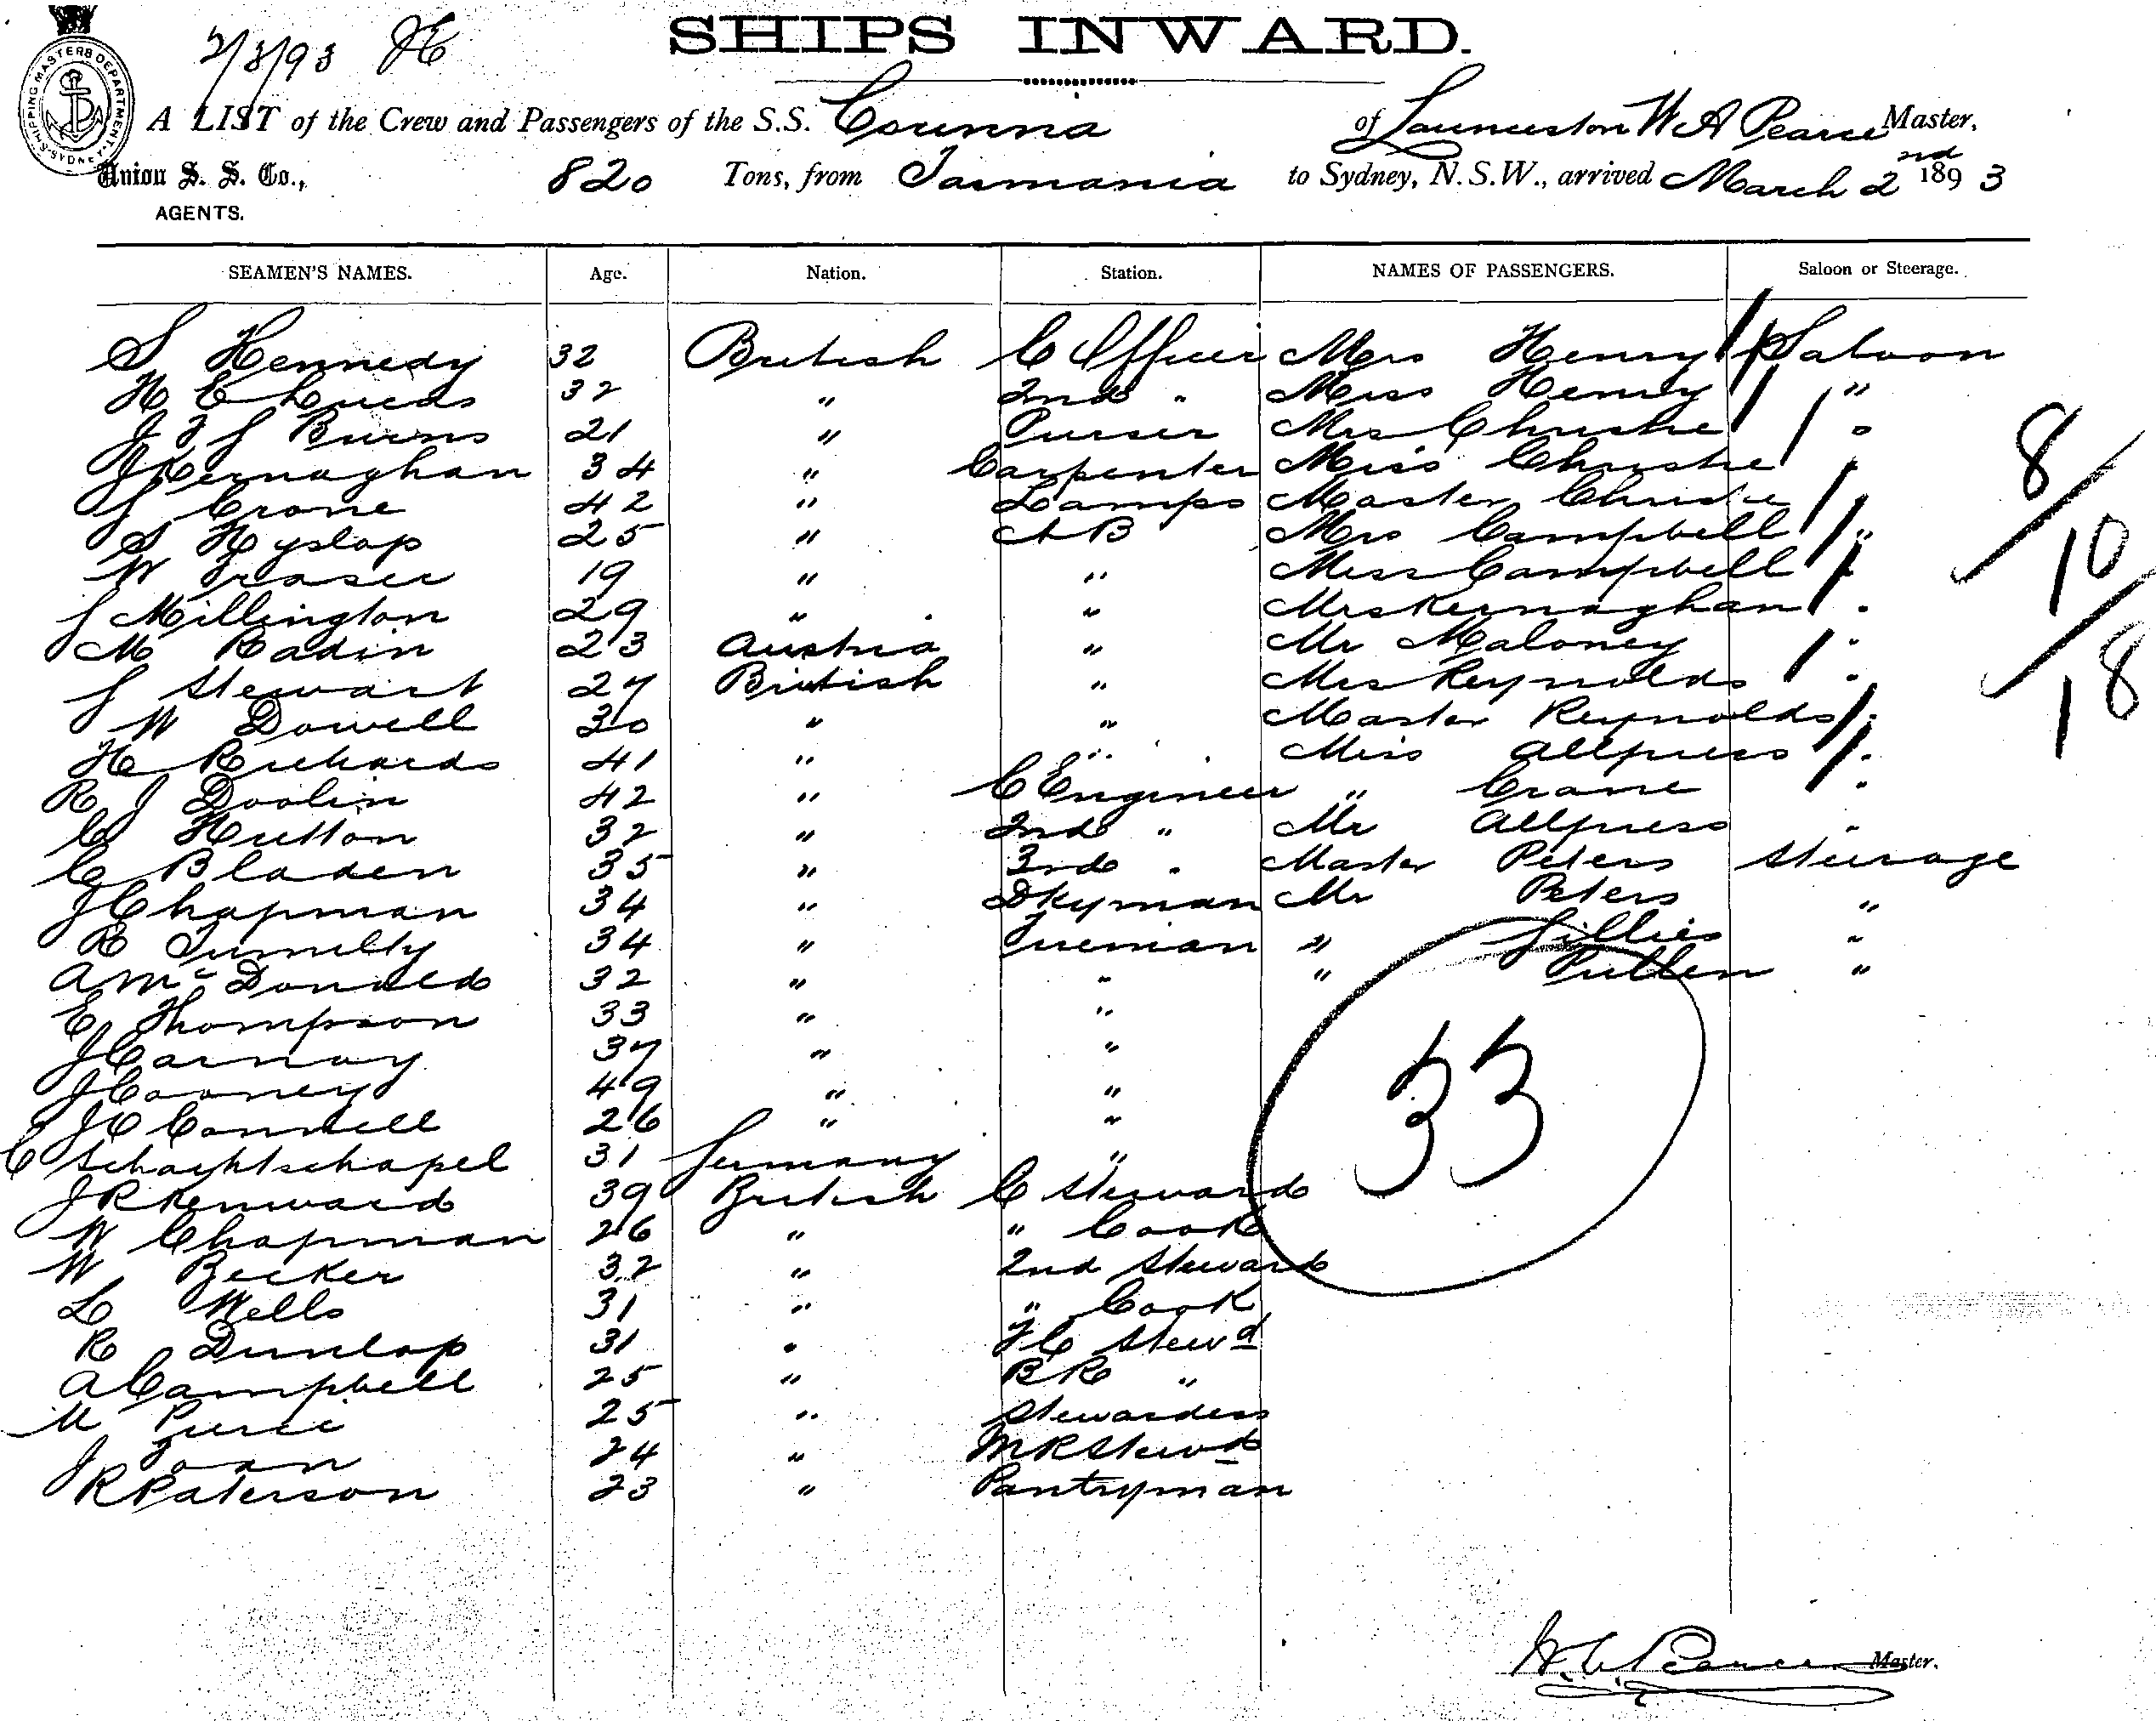 2/3/93 JE
SHIPS INWARD.
SHIPPING MASTERS DEPARTMENT. SYDNEY
A LIST of the Crew and Passengers of the S.S. Corinna of Launceston W A Pearce Master,
Union S. S. Co., AGENTS. 820 Tons, from Tasmania to Sydney, N.S.W., arrived March 2nd 1893
SEAMEN'S NAMES. Age. Nation. Station. NAMES OF PASSENGERS. Saloon or Steerage.
S Kennedy 32 British C Officer Mrs Henry / Saloon
H E Lucas 32 " 2nd " Miss Henry / "
J F J Burns 21 " Purser Mrs Christie / "
J Kernaghan 34 " Carpenter Miss Christie / "
J Crone 42 " Lamps Master Christie / "
S Hyslop 25 " A B Mrs Campbell / "
W Fraser 19 " " Miss Campbell / "
J Millington 29 " " Mrs Kernaghan / "
M Radin 23 Austria " Mr Maloney / "
J Stewart 27 British " Mrs Reynolds / "
W Dowell 30 " " Master Reynolds / "
H Richards 41 " " Miss Allpress / "
R J Doolin 42 " C Engineer " Crane / "
C Hutton 32 " 2nd " Mr Allpress "
C Bladen 35 " 3rd " Master Peters Steerage
J Chapman 34 " Dkyman Mr Peters "
R Tumilty 34 " Fireman " Gillies "
A McDonald 32 " " " Pullen "
E Thompson 33 " "
J Carnay 37 " "
J Cooney 49 " "
J C Connell 26 " "
C Schachtschapel 31 Germany "
J R Kenward 39 British C Steward
W Chapman 26 " " Cook
W Becker 32 " 2nd Steward
L Wells 31 " " Cook
R Dunlop 31 " F C Stewd
A Campbell 25 " B R "
M Pierce 25 " Stewardess
J 24 " M R Stewd
R Paterson 23 " Pantryman
8/10/18
33
W. A. Pearce Master.